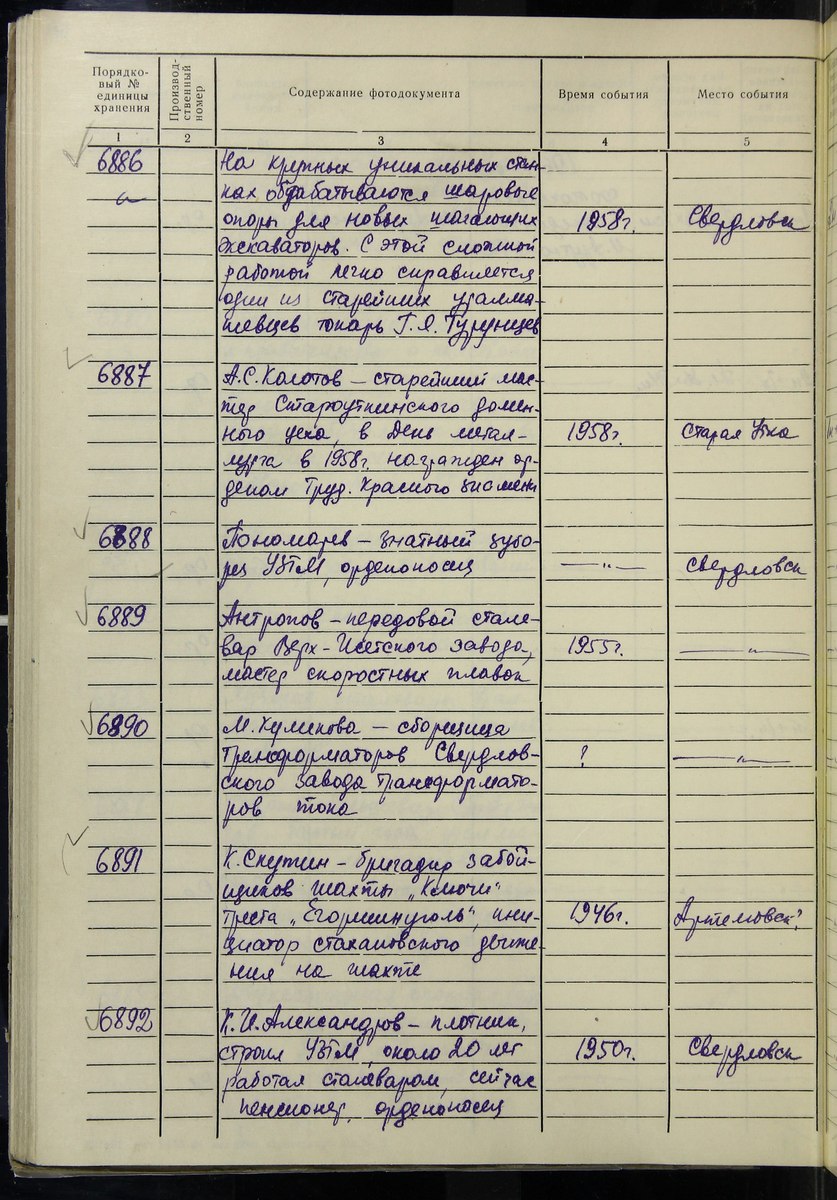 Порядко-
вый №
единицы
хранения
Производ-
ственный
номер
Содержание фотодокумента
Время события
Место события
1
2
3
4
5
6886
На крупных уникальных стан-
ках обрабатываются шаровые
опоры для новых шагающих
1958г.
Свердловск
экскаваторов. С этой сложной
работой легко справляется
один из старейших уралма-
шевцев токарь Г.Я.
6887
А.С. Колотов – старейший мас-
тер Староуткинского домен-
ного цеха, в День метал-
1958г.
Старая Утка
лурга в 1958г. награжден ор-
деном Труд. Красного знамени
6888
Пономарев – знатный зубо-
рез УЗТМ, орденоносец
—„—
Свердловск
6889
Антропов – передовой стале-
вар Верх-Исетского завода,
1955г.
—„—
мастер скоростных плавок
6890
М. Куликова – сборщица
трансформаторов Свердлов-
?
—„—
ского завода трансформато-
ров тока
6891
К. Скутин – бригадир забой-
щиков шахты „Ключи"
треста „Егоршинуголь", ини-
1946г.
Артемовск?
циатор стахановского движе-
ния на шахте
6892
К.И. Александров – плотник,
строил УЗТМ, около 20 лет
1950г.
Свердловск
работал сталеваром, сейчас
пенсионер, орденоносец